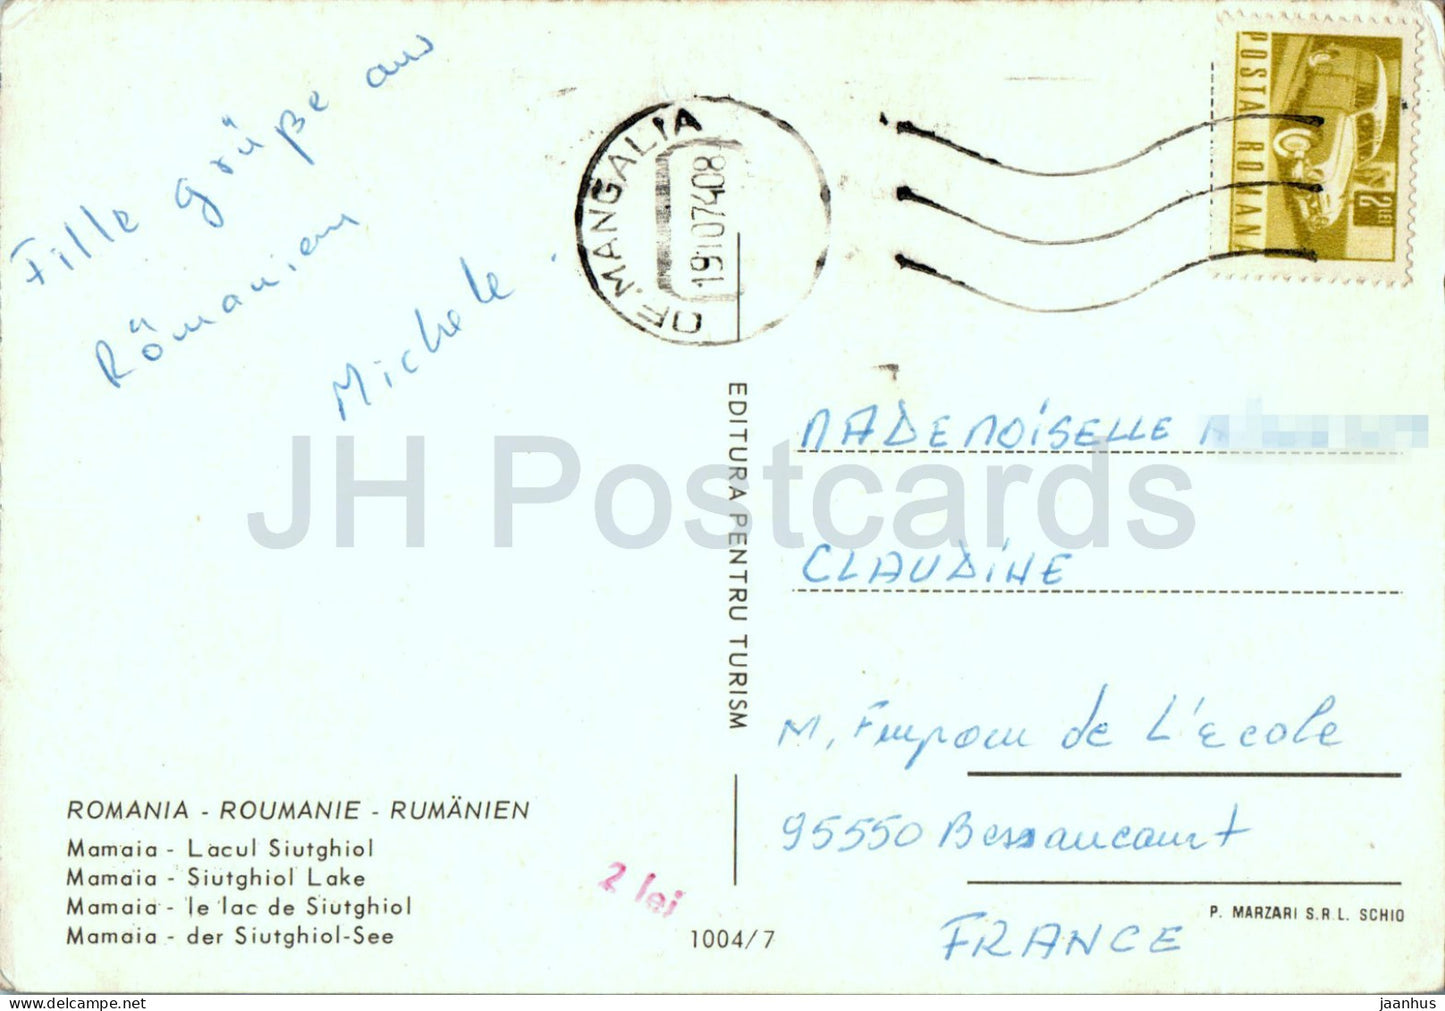 Fille grüße aus
Römanien
Michele.
OF. MANGALIA
16 1 07 4 08
POSTA ROMANA
2 LEI
EDITURA PENTRU TURISM
MADEMOISELLE
CLAUDINE
M, de L'Ecole
95550 Bessancourt
FRANCE
ROMANIA - ROUMANIE - RUMÄNIEN
Mamaia - Lacul Siutghiol
Mamaia - Siutghiol Lake
Mamaia - le lac de Siutghiol
Mamaia - der Siutghiol-See
2 lei
1004/7
P. MARZARI S.R.L. SCHIO
JH Postcards
jaanhus ecrater.com